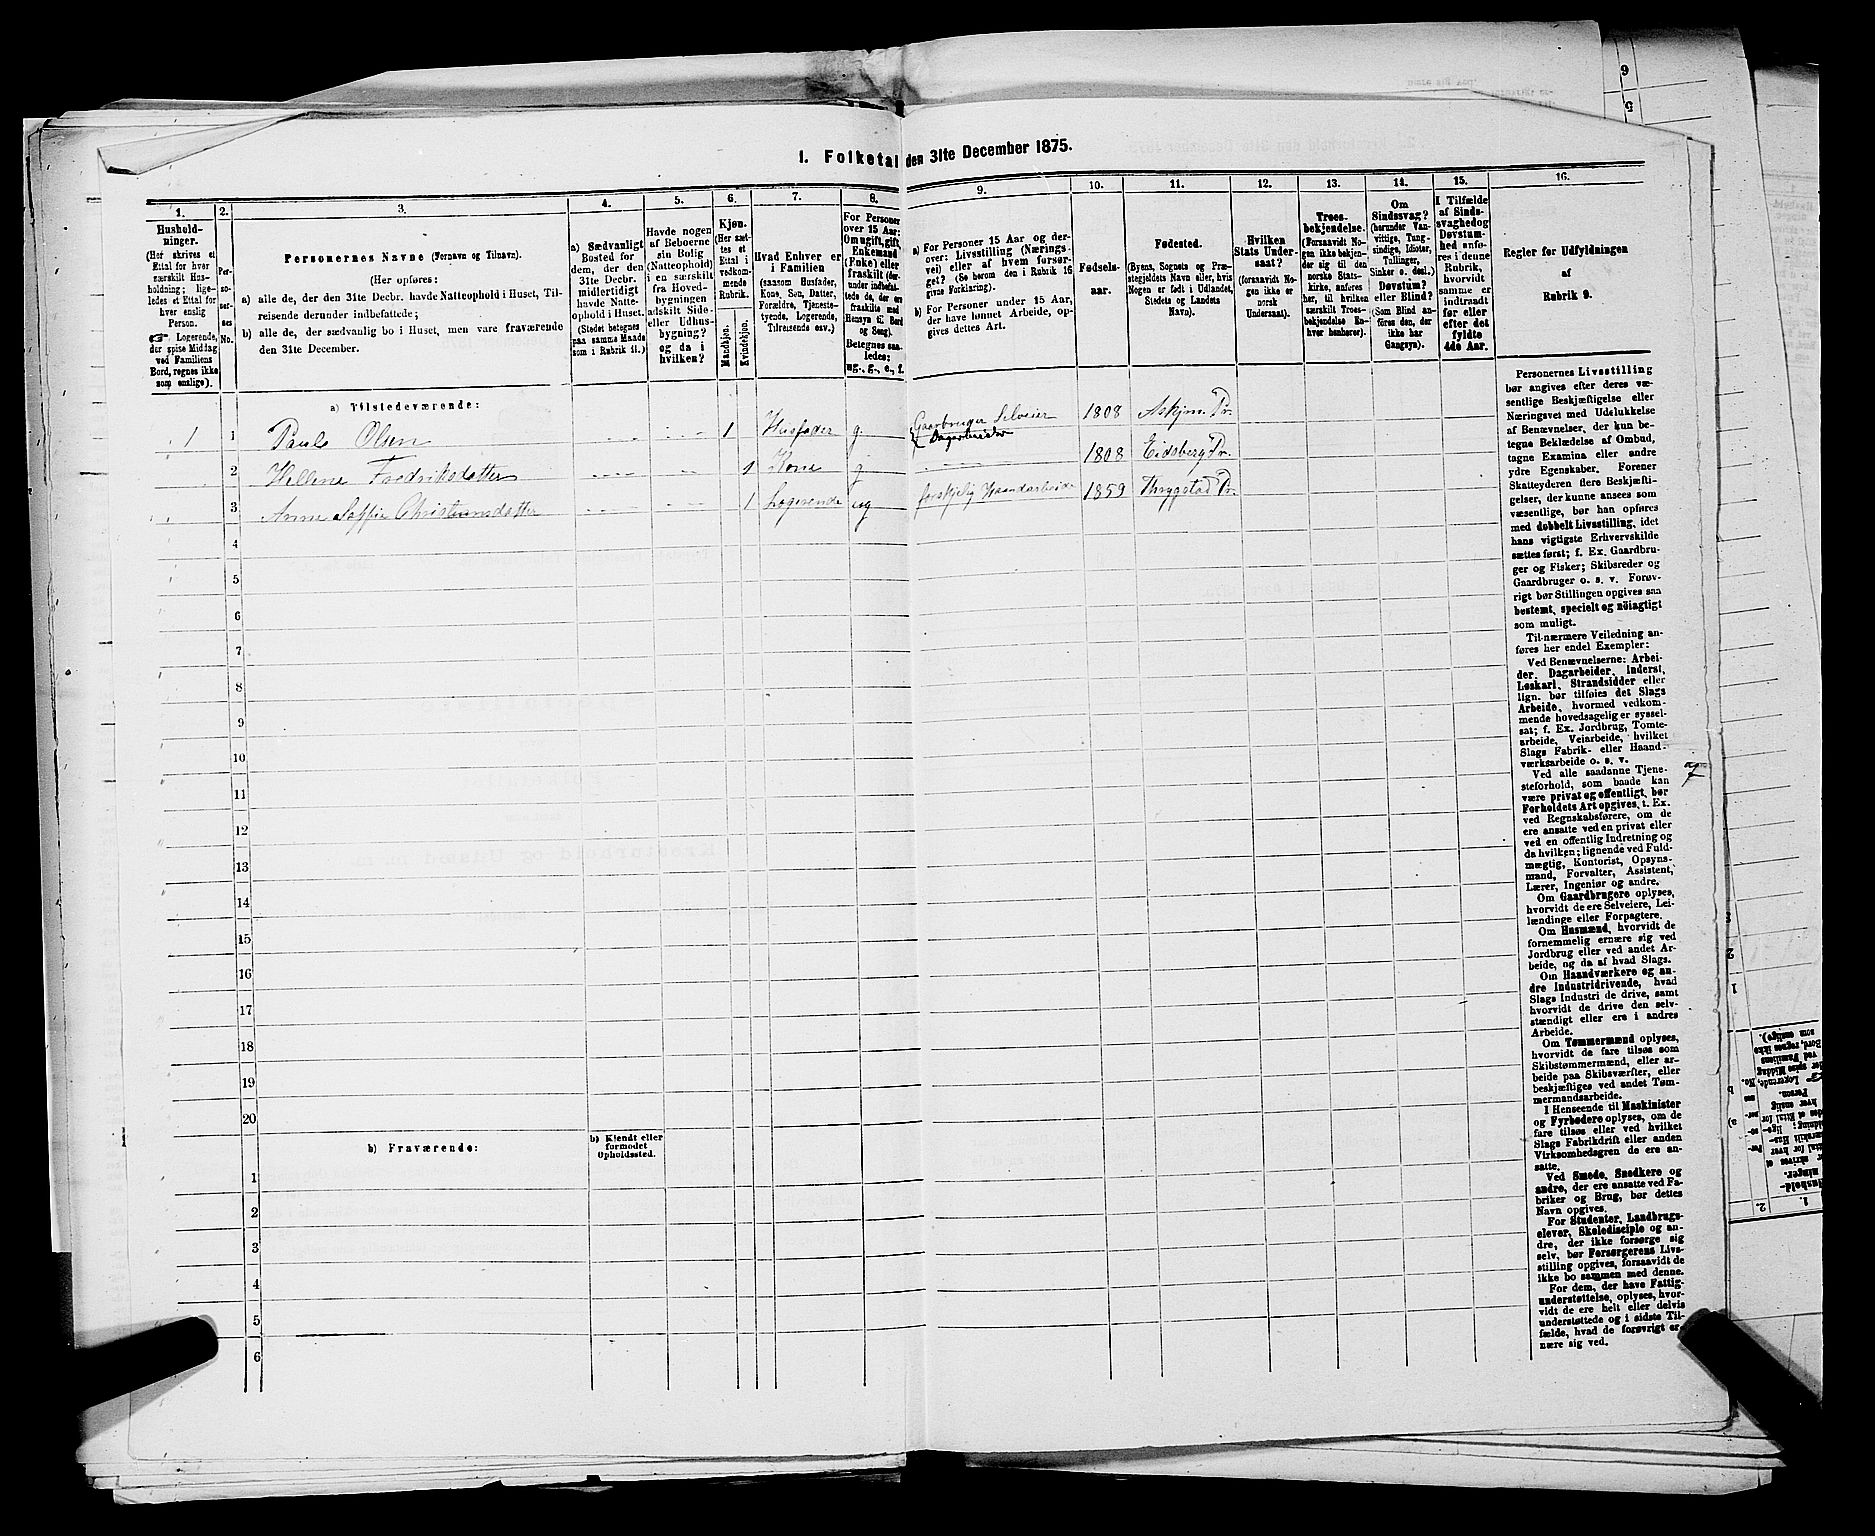 1. Folketal den 31te December 1875.
1.
2.
3.
4.
5.
6.
7.
8.
9.
10.
11.
12.
13.
14.
15.
16.
Husholdninger.
(Her skrives et
Ettal for hver
særskilt Husholdning; ligeledes
et Ettal for
hver enslig
Person.
Logerende,
der spise Middag
ved Familiens
Bord, regnes ikke
som enslige).
Personernes No.
Personernes Navne (Fornavn og Tilnavn).
(Her opføres:
a) alle de, der den 31te Decbr. havde Natteophold i Huset, Tilreisende derunder indbefattede;
b) alle de, der sædvanlig bo i Huset, men vare fraværende
den 31te December.
a) Sædvanligt
Bosted for
dem, der den
31te Decbr.
midlertidigt
havde Natteophold i Huset.
(Stedet betegnes
paa samme Maade
som i Rubrik 11.)
Havde nogen
af Beboerne
sin Bolig
(Natteophold)
i en særskilt
fra Hovedbygningen
adskilt Side-
eller Udhusbygning?
og da i
hvilken?
Kjøn.
(Her sættes et
Ettal i
vedkommende
Rubrik.
Mandkjøn.
Kvindekjøn.
Hvad Enhver er
i Familien
(saasom Husfader,
Kone, Søn, Datter,
Forældre, Tjenestetyende, Logerende,
Tilreisende osv.)
For Personer
over 15 Aar:
Om ugift, gift,
Enkemand
(Enke) eller
fraskilt (derunder indbefattede de, der ere
fraskilte med
Hensyn til Bord
og Seng).
Betegnes saaledes:
ug., g., e., f.
a) For Personer 15 Aar og derover: Livsstilling (Næringsvei) eller af hvem forsørget? (Se herom den i Rubrik 16
givne Forklaring).
b) For Personer under 15 Aar,
der have lønnet Arbeide, opgives dettes Art.
Fødselsaar.
Fødested.
(Byens, Sognets og Præstegjeldets Navn eller, hvis
Nogen er født i Udlandet,
Stedets og Landets
Navn).
Hvilken
Stats Undersaat?
(forsaavidt Nogen ikke er
norsk
Undersaat).
Troesbekjendelse.
(Forsaavidt Nogen ikke bekjender sig til den
norske Statskirke, anføres
her, til hvilken
særskilt Troesbekjendelse Enhver henhører).
Om
Sindssvag?
(herunder Vanvittige, Tungsindige, Idioter,
Tullinger,
Sinker o. desl.)
Døvstum?
eller Blind?
(Som Blind anføres den, der
ikke har
Gangsyn).
I Tilfælde
af Sindssvaghed og
Døvstumhed anføres i denne
Rubrik,
hvorvidt
samme er
indtraadt
før eller
efter det
fyldte
4de Aar.
Regler for Udfyldningen
af
Rubrik 9.
a) Tilstedeværende:
1 1 Paule Olsen 1 Husfader g Gaarbruger Selveier 1808 Askjm. Pr.
Dagarbeider
2 Hellene Fredriksdatter 1 Kone g 1808 Eidsberg Pr.
3 Anne Soffie Christiansdatter 1 Logerende ug forskjelig Haandarbeide 1859 Thrygstad Pr.
4
5
6
7
8
9
10
11
12
13
14
15
16
17
18
19
20
b) Fraværende:
b) Kjendt eller
formodet
Opholdssted.
1
2
3
4
5
6
Personernes Livsstilling
bør angives efter deres væsentlige Beskjæftigelse eller
Næringsvei med Udelukkelse
af Benævnelser, der kun betegne Beklædelse af Ombud,
tagne Examina eller andre
ydre Egenskaber. Forener
Skatteyderen flere Beskjæftigelser, der kunne ansees som
væsentlige, bør han opføres
med dobbelt Livsstilling, idet
hans vigtigste Erhvervskilde
sættes først; f. Ex. Gaardbruger og Fisker; Skibsreder og
Gaardbruger o. s. v. Forøvrigt bør Stillingen opgives saa
bestemt, specielt og nöiagtigt
som muligt.
Til nærmere Veiledning anføres her endel Exempler:
Ved Benævnelserne: Arbeider, Dagarbeider, Inderst,
Løskarl, Strandsidder eller
lign. bør tilføies det Slags
Arbeide, hvormed vedkommende hovedsagelig er sysselsat; f. Ex. Jordbrug, Tomtearbeide, Veiarbeide, hvilket
Slags Fabrik- eller Haandværksarbeide o. s. v.
Ved alle saadanne Tjenesteforhold, som baade kan
være privat og offentligt, bør
Forholdets Art opgives, t. Ex.
ved Regnskabsførere, om de
ere ansatte ved en privat eller
ved en offentlig Indretning og
da hvilken; lignende ved Fuldmægtig, Kontorist, Opsynsmand, Forvalter, Assistent,
Lærer, Ingeniør og andre.
Om Gaardbrugere oplyses,
hvorvidt de ere Selveiere, Leilændinge eller Forpagtere.
Om Husmænd, hvorvidt de
fornemmelig ernære sig ved
Jordbrug eller ved andet Arbeide, og da af hvad Slags.
Om Haandværkere og andre Industridrivende, hvad
Slags Industri de drive, samt
hvorvidt de drive den selvstændigt eller ere i andres
Arbeide.
Om Tømmermænd oplyses,
hvorvidt de fare tilsøs som
Skibstømmermænd, eller arbeide paa Skibsværfter, eller
beskjæftiges ved andet Tømmermandsarbeide.
I Henseende til Maskinister
og Fyrbødere oplyses, om de
fare tilsøs eller ved hvilket
Slags Fabrikdrift eller anden
Virksomhedsgren de ere ansatte.
Ved Smede, Snedkere og
andre, der ere ansatte ved Fabriker og Brug, bør dettes
Navn opgives.
For Studenter, Landbrugselever, Skoledisciple og andre, der ikke forsørge sig
selv, bør Forsørgerens Livsstilling opgives, forsaavidt de
ikke bo sammen med denne.
For dem, der have Fattigunderstøttelse, oplyses, hvorvidt de ere helt eller delvis
understøttede og i sidste Tilfælde, hvad de forøvrigt ernære sig ved.